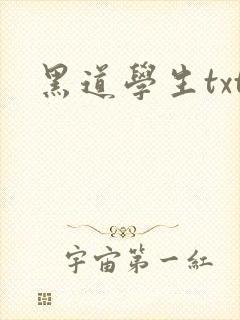 黑道學生txt
宇宙第一紅